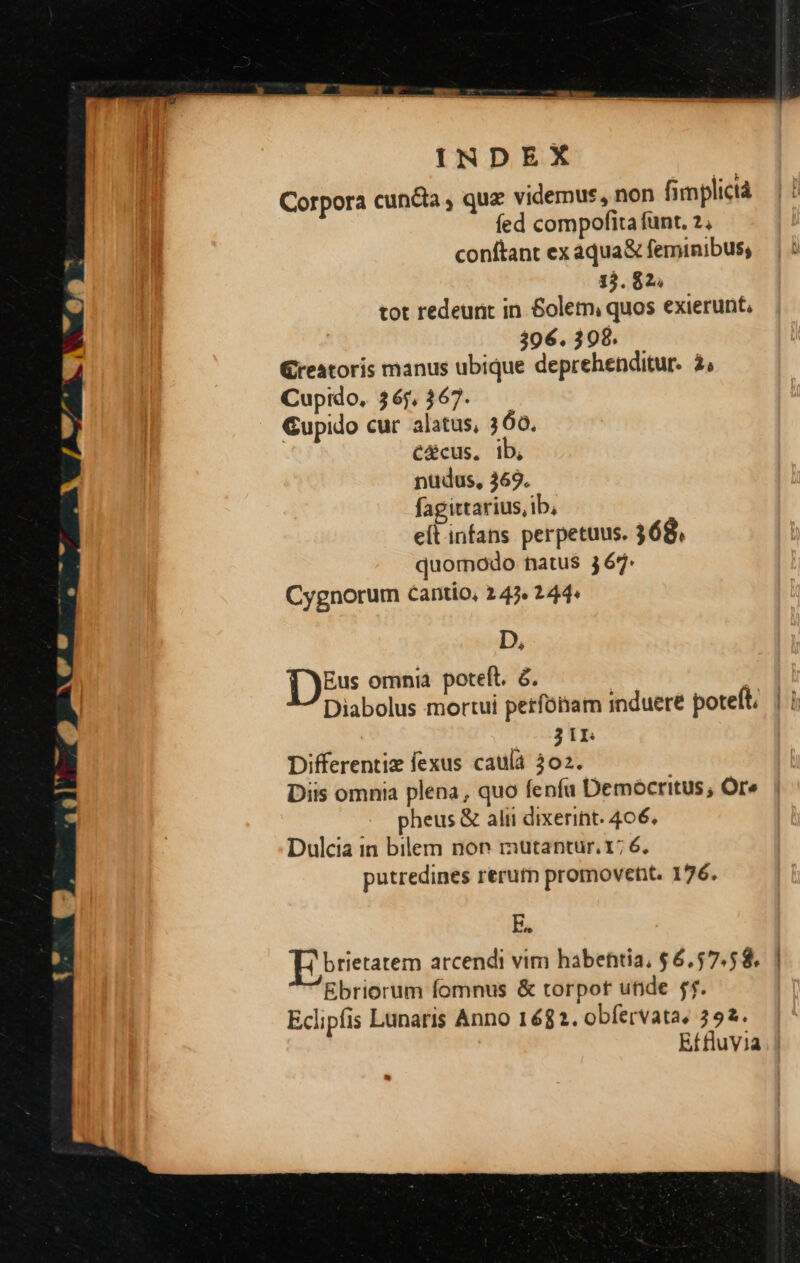 INDEX
Corpora cuncta, quæ videmus, non ſimplicià
ſed compoſita ſunt. 2,
conſtant ex aqua & ſeminibus,
13. 82,
tot redeunt in Solem, quos exierunt,
396. 398.
Creatoris manus ubique deprehenditur. 2,
Cupido, 365, 367.
Cupido cur alatus, 360.
cæcus. ib,
nudus, 369.
ſagittarius, ib,
eſt infans perpetuus. 368,
quomodo natus 367.
Cygnorum cantio, 243. 244.
D,
DEus omnia poteſt. 6.
Diabolus mortui perſonam induere poteſt.
311.
Differentiæ ſexus cauſa 302.
Diis omnia plena, quo ſenſu Democritus, Or-
pheus & alii dixerint. 406,
Dulcia in bilem non mutantur. 176,
putredines rerum promovent. 176.
E.
Ebrietatem arcendi vim habentia. 56. 57. 58.
Ebriorum ſomnus & torpor unde 55.
Eclipſis Lunaris Anno 1682. obſervata, 392.
Effluvia